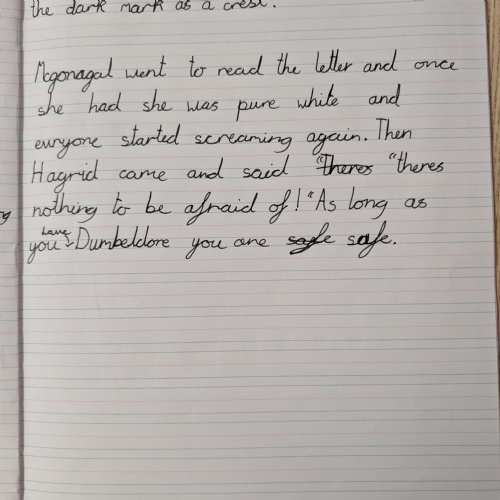 the dark mark as a crest.
Mcgonagal went to read the letter and once
she had she was pure white and
euryone started screaming again. Then
Hagrid came and said "Theres "theres
nothing to be afraid of! "As long as
you have Dumbeldore you are safe safe.